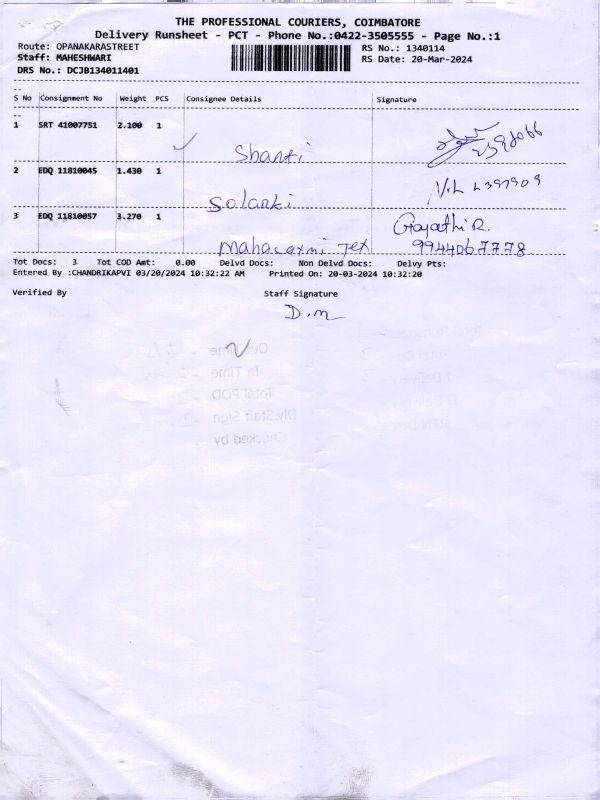 THE PROFESSIONAL COURIERS, COIMBATORE
Delivery Runsheet - PCT - Phone No.:0422-3505555 - Page No.:1
Route: OPANAKARASTREET
RS No.: 1340114
Staff: MAHESHWARI
RS Date: 20-Mar-2024
DRS No.: DCJB134011401
S No Consignment No Weight PCS Consignee Details Signature
1 SRT 41007751 2.100 1
Shanti
2 EDQ 11810045 1.430 1
Solanki
3 EDQ 11810057 3.270 1
Gayathi R.
Mahalaxmi Tex 9944067778
Tot Docs: 3 Tot COD Amt: 0.00 Delvd Docs: Non Delvd Docs: Delvy Pts:
Entered By :CHANDRIKAPVI 03/20/2024 10:32:22 AM Printed On: 20-03-2024 10:32:20
Verified By Staff Signature
D.m
Out Time
In Time
Total POD
Dly.Staff Sign
Checked by